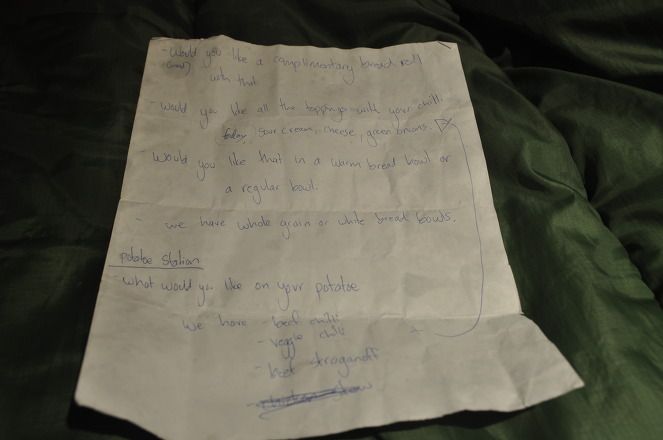 - Would you like a complimentary bread roll
(bowl) with that
- Would you like all the toppings with your chili.
today, sour cream, cheese, green onions.
- Would you like that in a warm bread bowl or
a regular bowl.
- we have whole grain or white bread bowls.
potatoe station
- what would you like on your potatoe
we have - beef chili
- veggie chili
- beef stroganoff